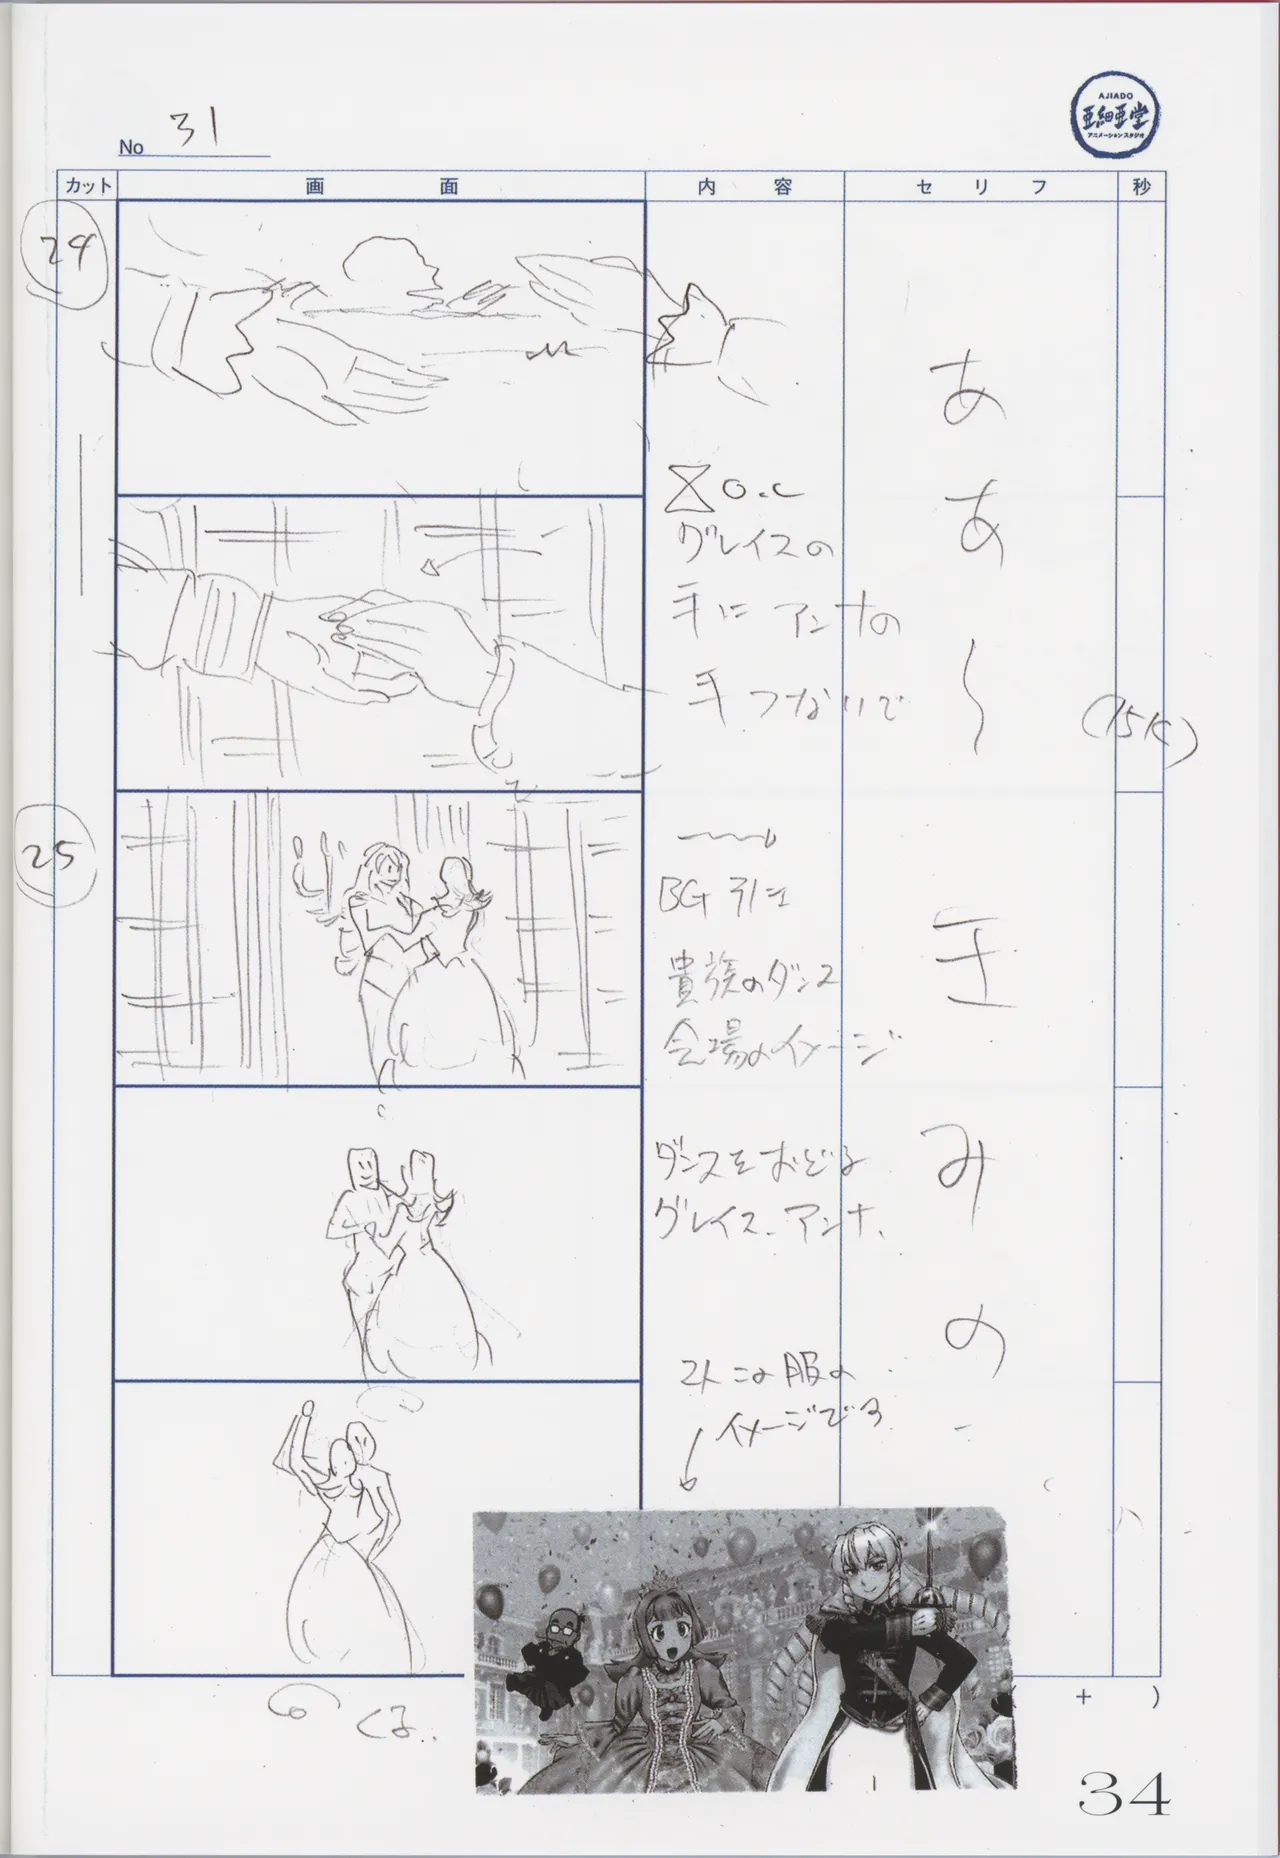 AJIADO
亜細亜堂
アニメーションスタジオ
No 31
カット
画面
内容
セリフ
秒
24
O.L
グレイスの
手にアンナの
手つないで
ああ〜
25
BG引き
貴族のダンス
会場のイメージ
き
ダンスをおどる
グレイス、アンナ、
みの
この服の
イメージで
くる..
( + )
34